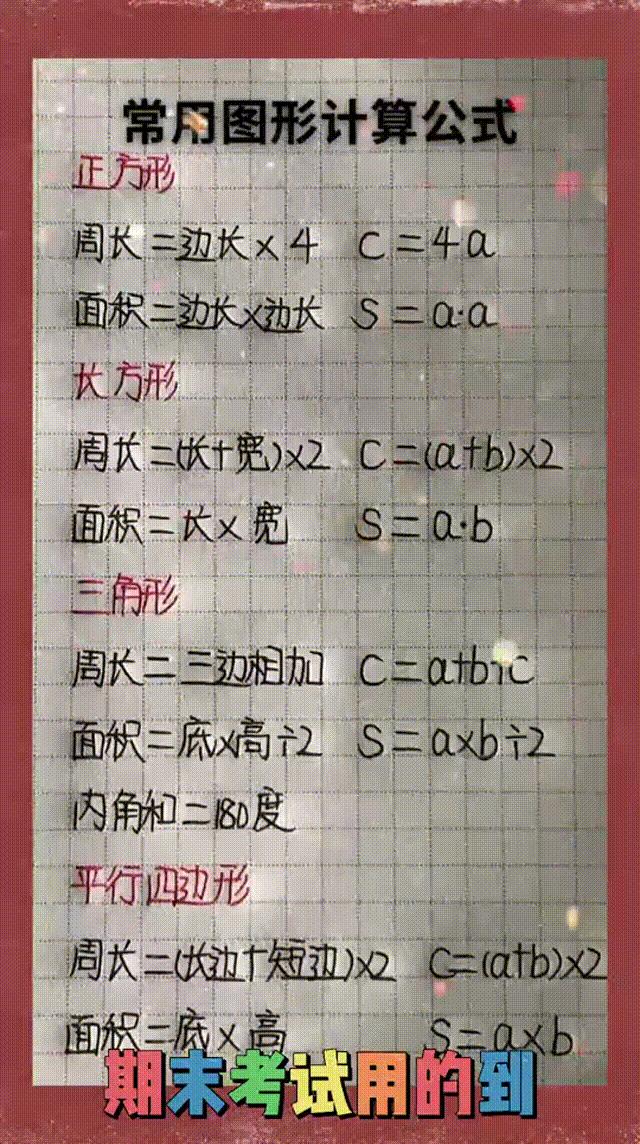 常用图形计算公式
正方形
周长=边长×4 C=4a
面积=边长×边长 S=a·a
长方形
周长=(长+宽)×2 C=(a+b)×2
面积=长×宽 S=a·b
三角形
周长=三边相加 C=a+b+c
面积=底×高÷2 S=a×b÷2
内角和=180度
平行四边形
周长=(长边+短边)×2 C=(a+b)×2
面积=底×高 S=a×b
期末考试用的到